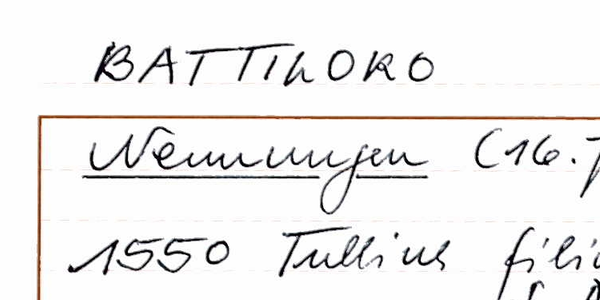 BATTILORO
Nennungen (16.
1550 Tullius fili